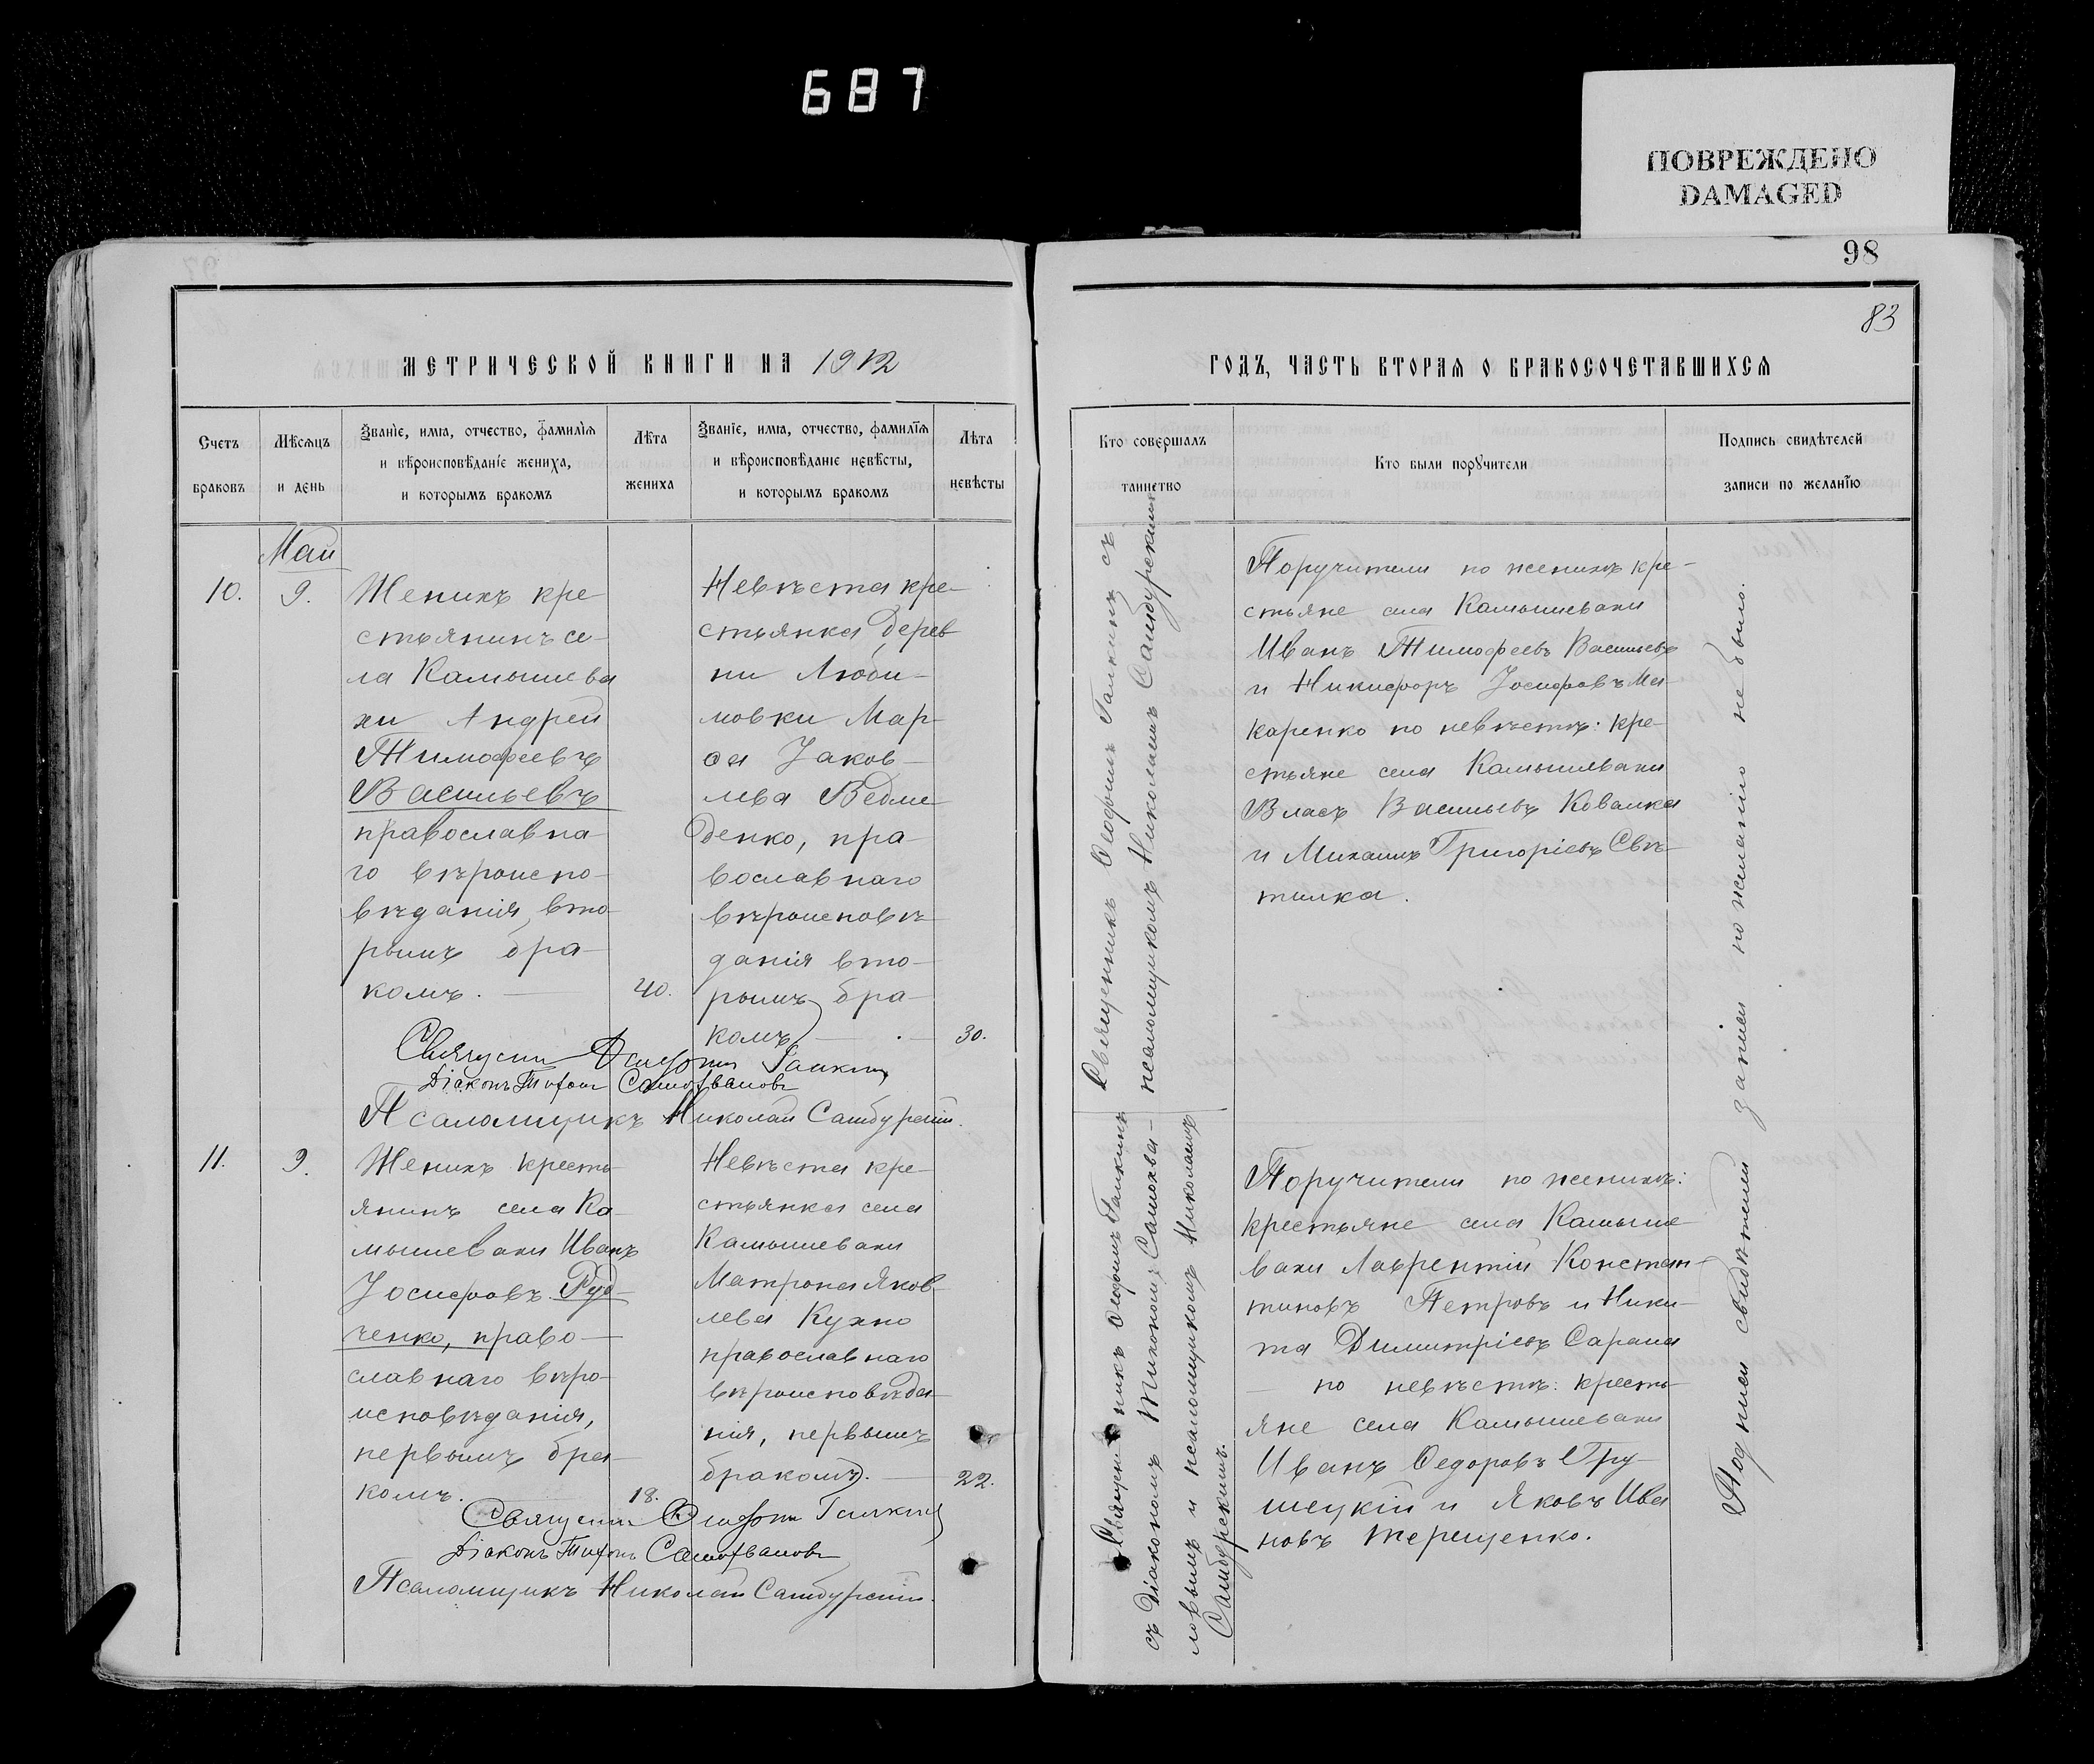 687
ПОВРЕЖДЕНО
DAMAGED
98
83
МЕТРИЧЕСКОЙ КНИГИ НА 1912
ГОДЪ, ЧАСТЬ ВТОРАѦ О БРАКОСОЧЕТАВШИХСѦ
Счетъ
браковъ
Мѣсѧцъ
и день
Званіе, имѧ, отчество, фамиліѧ
и вѣроисповѣданіе жениха,
и которымъ бракомъ
Лѣта
жениха
Званіе, имѧ, отчество, фамиліѧ
и вѣроисповѣданіе невѣсты,
и которымъ бракомъ
Лѣта
невѣсты
Кто совершалъ
таинство
Кто были порꙋчители
Подпись свидѣтелей
записи по желанію
Май
10.
9.
Женихъ кре
стьянинъ се-
ла Камышева
хи Андрей
Тимофеевъ
Васильевъ
православна
го вѣроиспо-
вѣданія, вто-
рымъ бра-
комъ.
40.
Невѣста кре-
стьянка дерев
ни Люби-
мовки Мар-
ѳа Іаков-
лева Ведме
денко, пра-
вославнаго
вѣроисповѣ-
данія вто-
рымъ бра-
комъ
30.
Священникъ Ѳеофилъ Галкинъ съ
псаломщикомъ Николаемъ Самбурскимъ
Поручители по женихѣ кре-
стьяне села Камышевахи
Иванъ Тимофеевъ Васильевъ
и Никифоръ Іосифовъ Ма-
каренко по невѣстѣ: кре-
стьяне села Камышевахи
Власъ Васильевъ Ковалка
и Михаилъ Григоріевъ Свѣ-
тилка.
Галкинъ
Діаконъ Тихонъ Самохваловъ
Псаломщикъ Николай Самбурскій.
11.
9.
Женихъ кресть-
янинъ села Ка-
мышевахи Иванъ
Іосифовъ Руд-
ченко, право-
славнаго вѣро-
исповѣданія,
первымъ бра-
комъ.
18.
Невѣста кре-
стьянка села
Камышевахи
Матрона Яков-
лева Кухно
православнаго
вѣроисповѣда-
нія, первымъ
бракомъ.
22.
Священникъ Ѳеофилъ Галкинъ
съ Діакономъ Тихономъ Самохва-
ловымъ и псаломщикомъ Николаемъ
Самбурскимъ.
Поручители по женихѣ:
крестьяне села Камыше-
вахи Лаврентій Констан-
тиновъ Петровъ и Ники-
та Димитріевъ Сарана
— по невѣстѣ: кресть-
яне села Камышевахи
Иванъ Ѳедоровъ Гру-
шецкій и Яковъ Ива
новъ Терещенко.
Подписи свидѣтелей записи по желанію не было.
Галкинъ
Діаконъ Тихонъ Самохваловъ
Псаломщикъ Николай Самбурскій.